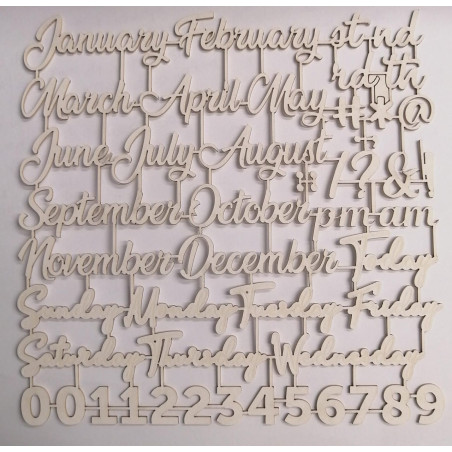 January February st nd
rd th
March April May # * @
June July August
" 1 2 & !
September October pm am
November December Today
Sunday Monday Tuesday Friday
Saturday Thursday Wednesday
0 0 1 1 2 2 3 4 5 6 7 8 9